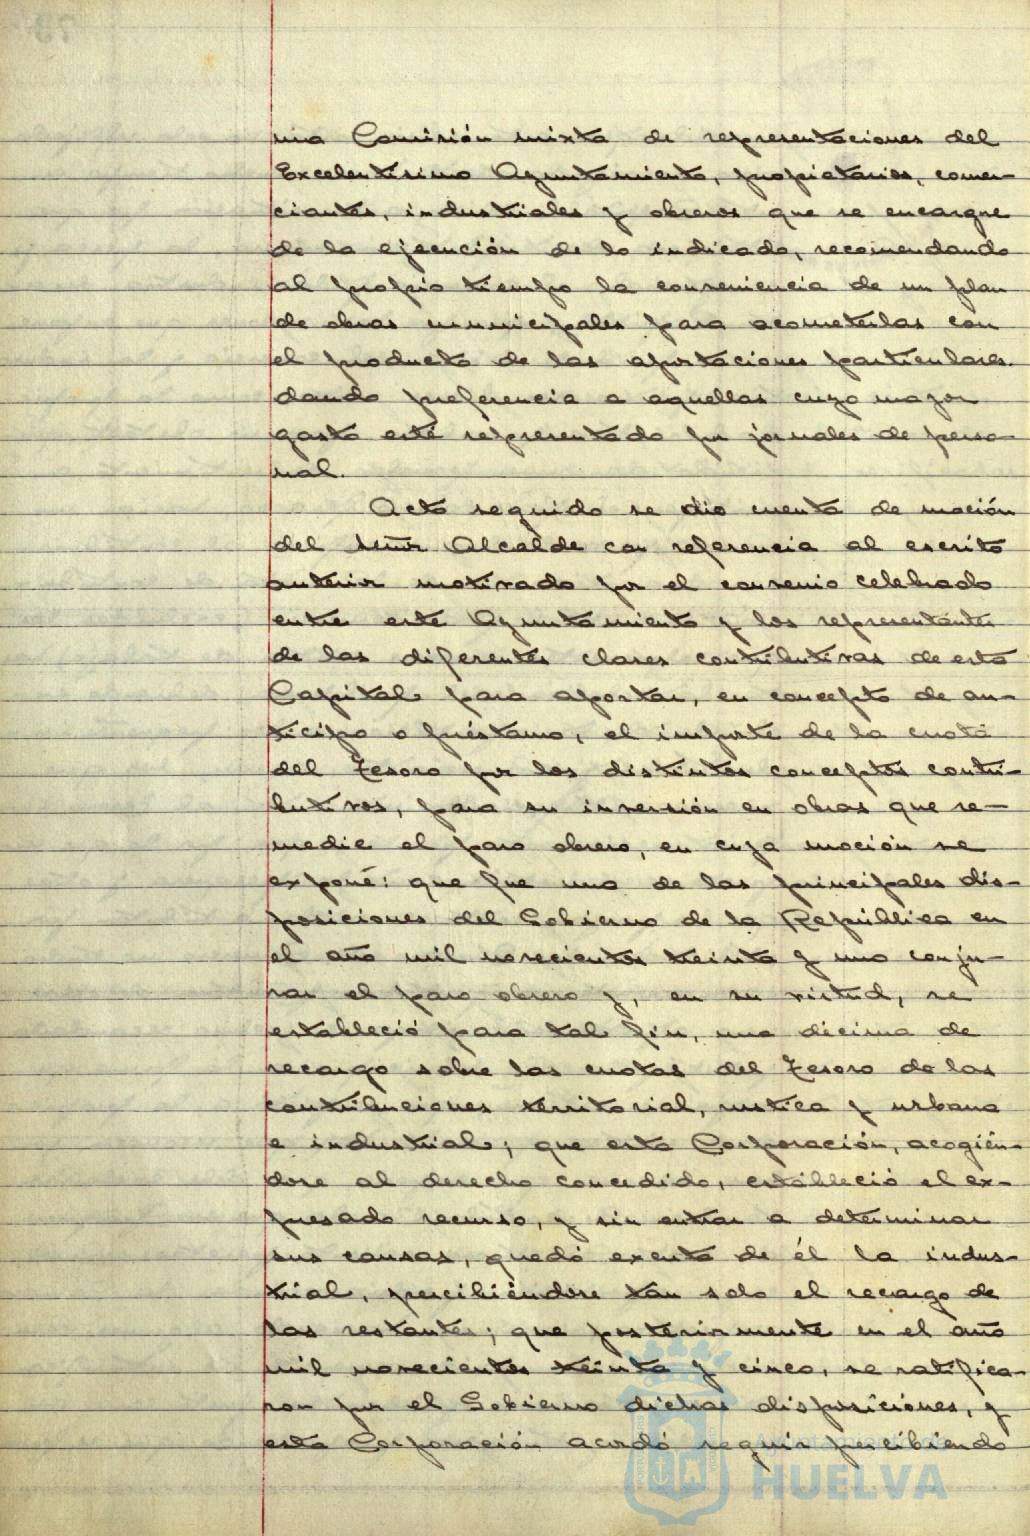 una Comisión mixta de representaciones del
Excelentísimo Ayuntamiento, propietarios, comer-
ciantes, industriales y obreros que se encargue
de la ejecución de lo indicado, recomendando
al propio tiempo la conveniencia de un plan
de obras municipales para acometerlas con
el producto de las aportaciones particulares.
dando preferencia a aquellas cuyo mayor
gasto esté representado por jornales de perso-
nal.
Acto seguido se dio cuenta de moción
del Señor Alcalde con referencia al escrito
anterior motivado por el convenio celebrado
entre este Ayuntamiento y los representantes
de las diferentes clases contributivas de esta
Capital para aportar, en concepto de an-
ticipo o préstamo, el importe de la cuota
del Tesoro por los distintos conceptos contri-
butivos, para su inversión en obras que re-
medie el paro obrero, en cuya moción se
expone: que fue una de las principales dis-
posiciones del Gobierno de la República en
el año mil novecientos treinta y uno conju-
rar el paro obrero y, en su virtud, se
estableció para tal fin, una décima de
recargo sobre las cuotas del Tesoro de las
contribuciones territorial, rustica y urbana
e industrial; que esta Corporación, acogién-
dose al derecho concedido, estableció el ex-
presado recurso, y sin entrar a determinar
sus causas, quedó exenta de él la indus-
trial, percibiéndose tan solo el recargo de
las restantes; que posteriormente en el año
mil novecientos treinta y cinco, se ratifica-
ron por el Gobierno dichas disposiciones, y
esta Corporación acordó seguir percibiendo
HUELVA